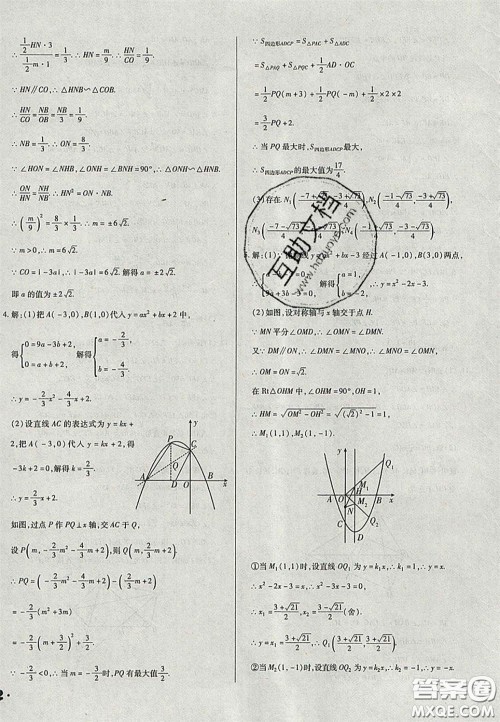 ∵ $\frac{\frac{1}{2}HN·3}{\frac{1}{2}m·1}=\frac{1}{3}$.∴ $\frac{HN}{m}=\frac{1}{9}$.∴ $\frac{HN}{CO}=\frac{1}{9}$.
∵ HN∥CO,∴ △HNB∽△COB.
∴ $\frac{HN}{CO}=\frac{NB}{OB}=\frac{NB}{3}=\frac{1}{9}$.
∴ NB=$\frac{1}{3}$.∴ ON=$\frac{8}{3}$.
∵ ∠HON=∠NHB,∠ONH=∠BNH=90°,∴ △OHN∽△HNB.
∴ $\frac{HN}{ON}=\frac{NB}{HN}$.∴ HN²=ON·NB.
∴ $\left(\frac{m}{9}\right)^2=\frac{8}{3}×\frac{1}{3}$.∴ m=±6√2.
∵ m>0,∴ m=6√2.
∵ CO=|-3a|,∴ |-3a|=6√2.解得a=±2√2.
即a的值为±2√2.
4.解:(1)把A(-3,0),B(1,0)代入y=ax²+bx+2中,
得{0=9a-3b+2, 0=a+b+2.解得{a=-$\frac{2}{3}$, b=-$\frac{4}{3}$.
∴ y=-$\frac{2}{3}$x²-$\frac{4}{3}$x+2.
(2)设直线AC的表达式为y=kx+
2,把A(-3,0)代入y=kx+2,得
-3k+2=0,解得k=$\frac{2}{3}$.
∴ y=$\frac{2}{3}$x+2.
P
C
Q
A
D
O
B
x
y
如图,过点P作PQ⊥x轴,交AC于Q,
设P(m,-$\frac{2}{3}$m²-$\frac{4}{3}$m+2),则Q(m,$\frac{2}{3}$m+2).
∴ PQ=(-$\frac{2}{3}$m²-$\frac{4}{3}$m+2)-($\frac{2}{3}$m+2)
=-$\frac{2}{3}$(m²+3m)
=-$\frac{2}{3}$(m+$\frac{3}{2}$)²+$\frac{3}{2}$.
∵ -$\frac{2}{3}$<0,∴ 当m=-$\frac{3}{2}$时,PQ有最大值$\frac{3}{2}$.
∵ S四边形ADCP=S△PAC+S△ADC
=S△PAQ+S△PCQ+$\frac{1}{2}$AD·OC
=$\frac{1}{2}$PQ(m+3)+$\frac{1}{2}$PQ(-m)+$\frac{1}{2}$×2×2
=$\frac{3}{2}$PQ+2.
∴ 当PQ最大时,S四边形ADCP最大,
∴ S四边形ADCP的最大值为$\frac{17}{4}$.
(3)存在.N₁($\frac{-7+\sqrt{73}}{4}$,$\frac{-3+\sqrt{73}}{4}$),N₂($\frac{-1-\sqrt{73}}{4}$,
解:(1)把A(-1,0),B(3,0)两点,
得 9a+3b-3=0.解得{a=1, b=-2.∴ y=x²-2x-3.
(2)如图,设对称轴与x轴交于点H.
∵ MN平分∠OMD,∴ ∠OMN=∠DMN.
又∵ DM∥ON,∴ ∠DMN=∠MNO.∴ ∠MNO=∠OMN.
∴ OM=ON=√2.
在Rt△OHM中,∠OHM=90°,OH=1.
∴ HM=√(OM²-OH²)=√((√2)²-1)=1.
∴ M₁(1,1),M₂(1,-1).
y
Q₁
M₁
H
O
x
N
M₂
C
D
Q₂
①当M₁(1,1)时,设直线OQ₁为y=k₁x,∴ k₁=1.∴ y=x.
∴ x²-2x-3=x.∴ x²-3x-3=0.
∴ x₁=$\frac{3+\sqrt{21}}{2}$,x₂=$\frac{3-\sqrt{21}}{2}$.
∵ y=x,∴ y=$\frac{3+\sqrt{21}}{2}$.∴ Q₁($\frac{3+\sqrt{21}}{2}$,$\frac{3+\sqrt{21}}{2}$).
②当M₂(1,-1)时,设直线OQ₂为y=k₂x,∴ k₂=-1.∴ y=-x.
互助文档
答案圈
MXQE.COM